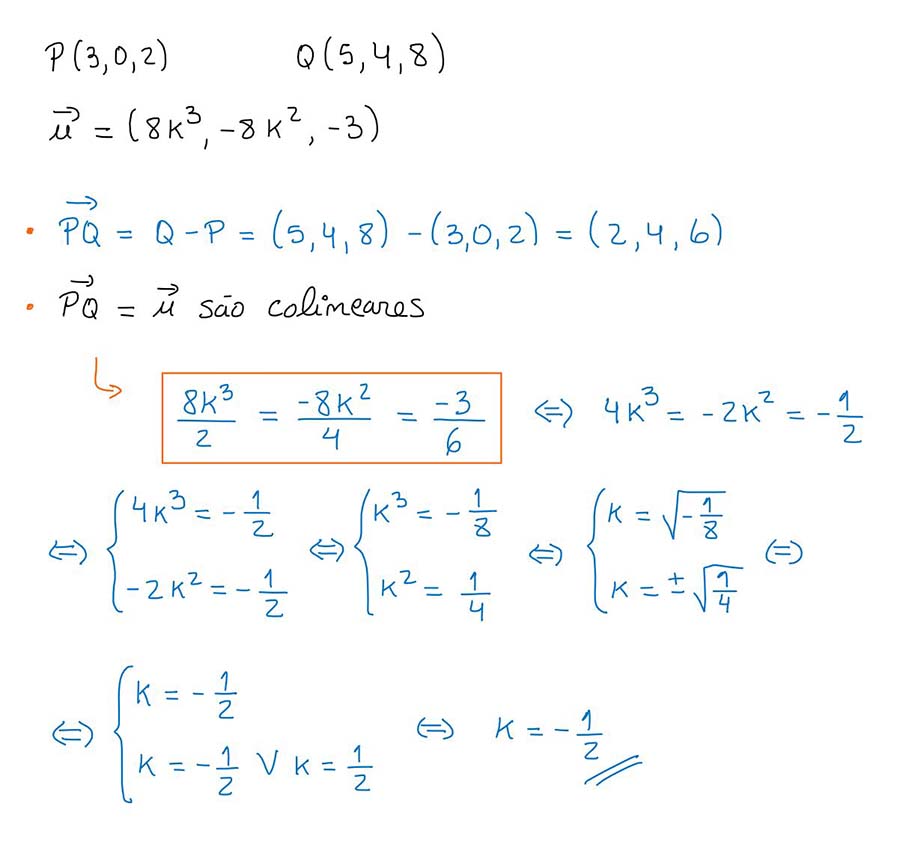 P(3,0,2) Q(5,4,8)
u⃗ = (8K³, -8K², -3)
• PQ⃗ = Q - P = (5,4,8) - (3,0,2) = (2,4,6)
• PQ⃗ = u⃗ são colineares
↳ 8K³/2 = -8K²/4 = -3/6 ⇔ 4K³ = -2K² = -1/2
⇔ { 4K³ = -1/2 ; -2K² = -1/2 ⇔ { K³ = -1/8 ; K² = 1/4 ⇔ { K = √(-1/8) ; K = ±√(1/4) ⇔
⇔ { K = -1/2 ; K = -1/2 ∨ K = 1/2 ⇔ K = -1/2